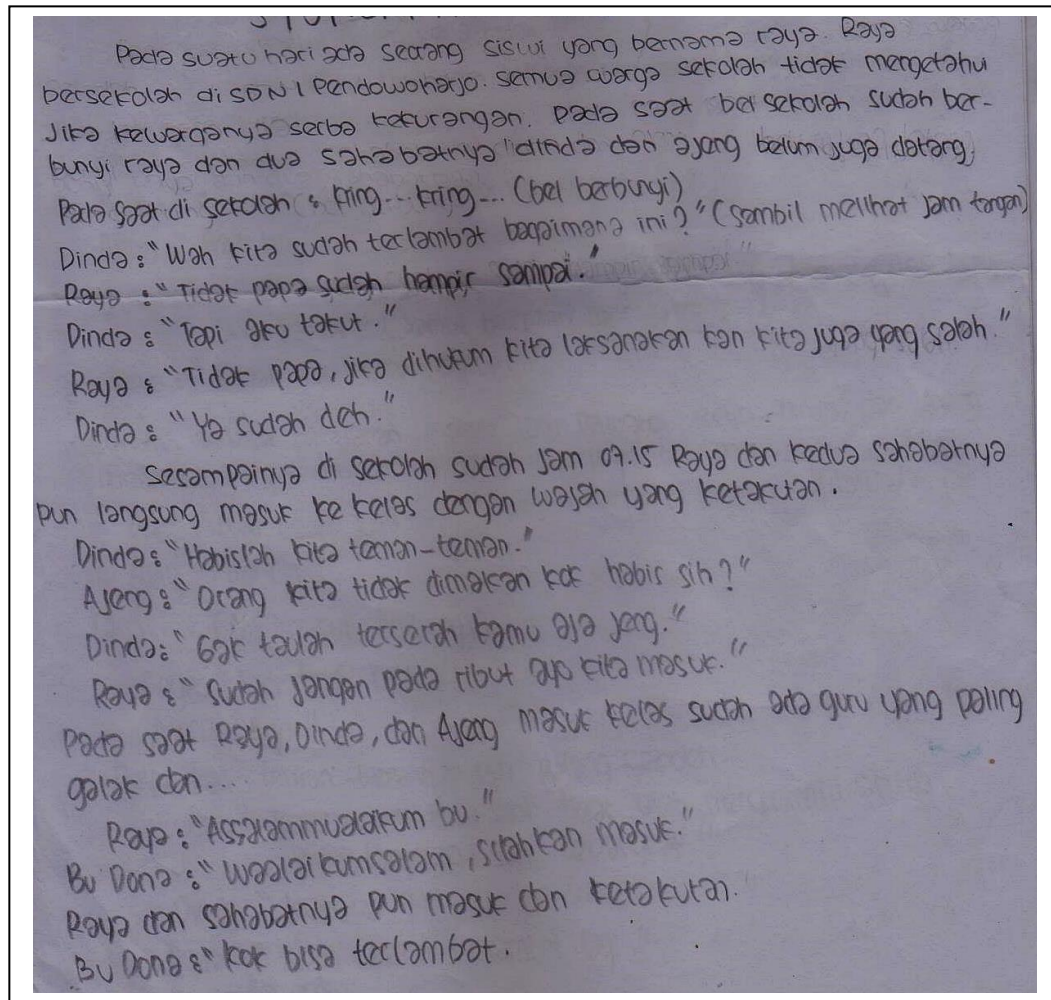 Pada suatu hari ada seorang siswi yang bernama raya. Raya
bersekolah di SDN 1 Pendowoharjo. semua warga sekolah tidak mengetahu
Jika keluarganya serba kekurangan. pada saat bel sekolah sudah ber-
bunyi raya dan dua sahabatnya dinda dan ajeng belum juga datang.
Pada saat di sekolah : kring... kring... (bel berbunyi)
Dinda : "Wah kita sudah terlambat bagaimana ini?" (sambil melihat jam tangan)
Raya : "Tidak papa sudah hampir sampai."
Dinda : "Tapi aku takut."
Raya : "Tidak papa, jika dihukum kita laksanakan kan kita juga yang salah."
Dinda : "Ya sudah deh."
Sesampainya di sekolah sudah jam 07.15 Raya dan kedua sahabatnya
pun langsung masuk ke kelas dengan wajah yang ketakutan.
Dinda : "Habislah kita teman-teman."
Ajeng : "Orang kita tidak dimakan kok habis sih?"
Dinda : "Gak taulah terserah kamu aja jeng."
Raya : "Sudah jangan pada ribut ayo kita masuk."
Pada saat Raya, Dinda, dan Ajeng masuk kelas sudah ada guru yang paling
galak dan....
Raya : "Assalammualaikum bu."
Bu Dona : "Waalaikumsalam, silahkan masuk."
Raya dan sahabatnya pun masuk dan ketakutan.
Bu Dona : "kok bisa terlambat.